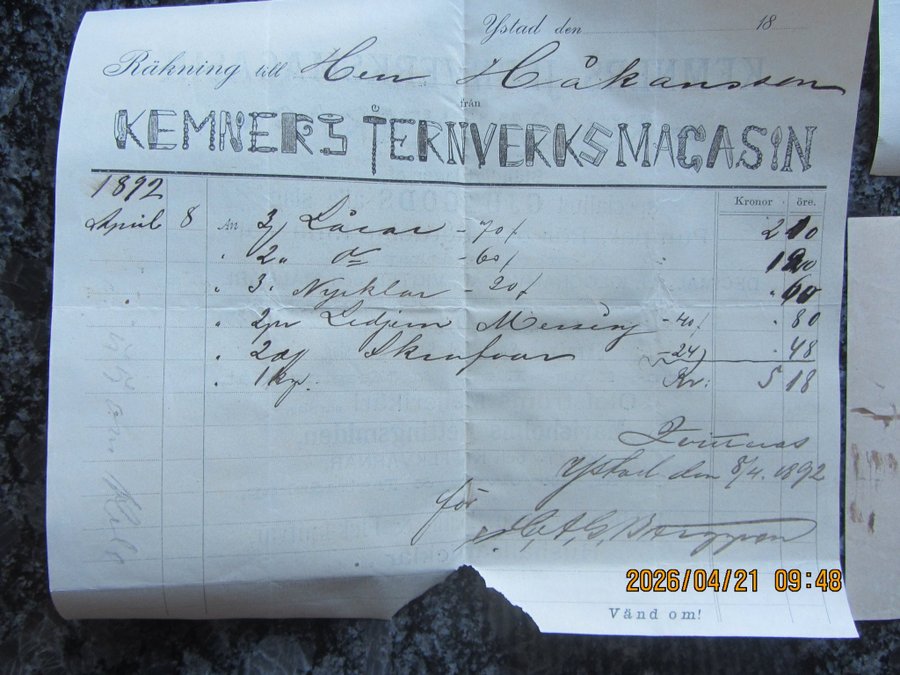 Ystad den 18
Räkning till Herr Håkansson
från
KEMNERS JERNVERKSMAGASIN
Kronor öre.
1892
April 8 An 3 st Låsar - 70 2 10
" 2 " do - 60 1 20
" 3 " Nycklar - 20 " 60
" 2 pr Ledjern Messing - 40 " 80
" 2 Skrufvar - 24 " 48
" 1 Kr: 5 18
Ystad den 8/4 1892
för
2026/04/21 09:48
Vänd om!